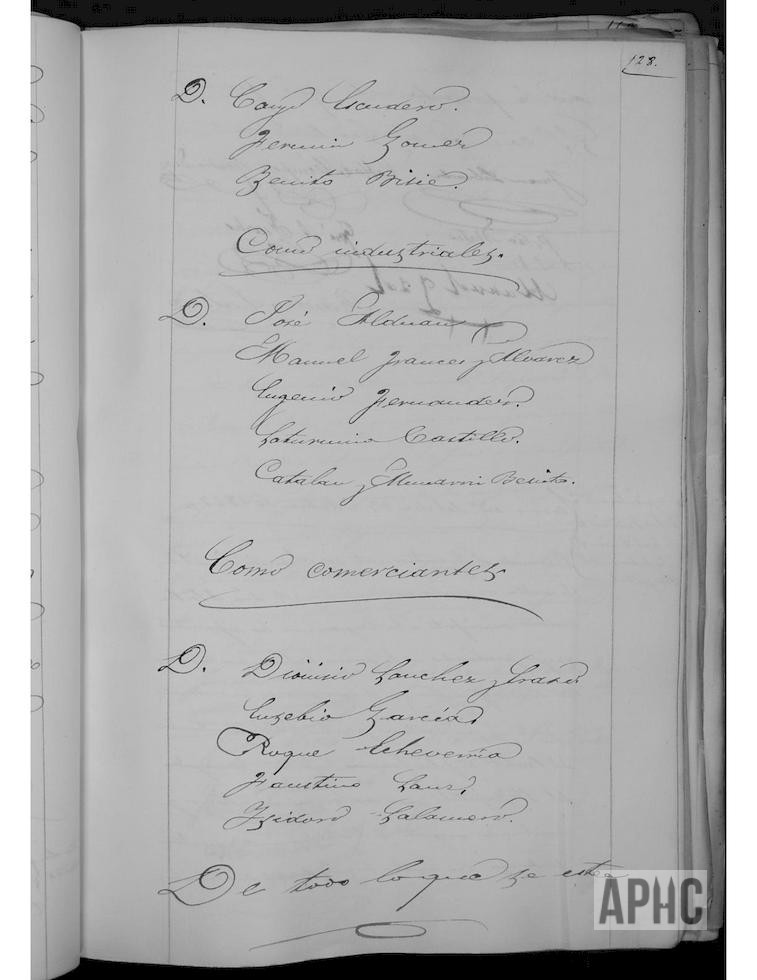 128.
D. Cayo Escudero.
Fermin Gomez
Benito
Como industriales.
D. José Alduan
Manuel Frances y Alvarez
Eugenio Fernandez.
Saturnino Castillo.
Catalan y Benito.
Como comerciantes
D. Dionisio Sanchez y
Eusebio Garcia,
Roque Echeverria
Faustino
Isidoro Salamero.
De todo lo que se
APHC